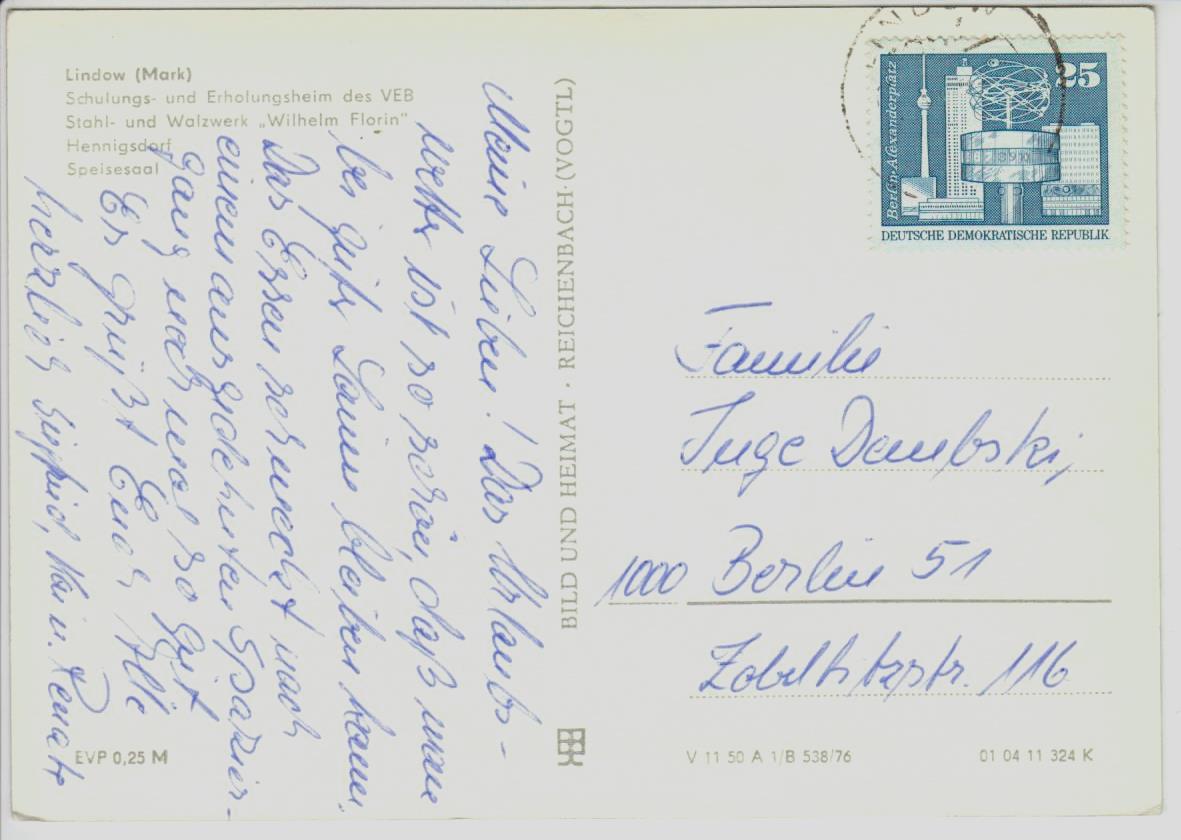 Lindow (Mark)
Schulungs- und Erholungsheim des VEB
Stahl- und Walzwerk „Wilhelm Florin"
Hennigsdorf
Speisesaal
Meine Lieben! Das Urlaubs-
wetter ist so schön, daß man
bei guter Laune bleiben kann.
Das Essen schmeckt nach
einem ausgedehnten Spazier-
gang noch mal so gut
Es grüßt Euch Alle
herzlich Sigfrid, Kai u. Renate
EVP 0,25 M
BILD UND HEIMAT · REICHENBACH · (VOGTL)
LINDOW
Berlin-Alexanderplatz
25
7 8 9 10
DEUTSCHE DEMOKRATISCHE REPUBLIK
Familie
Inge Dembski,
1000 Berlin 51
Zobeltitzstr. 116
V 11 50 A 1/B 538/76
01 04 11 324 K